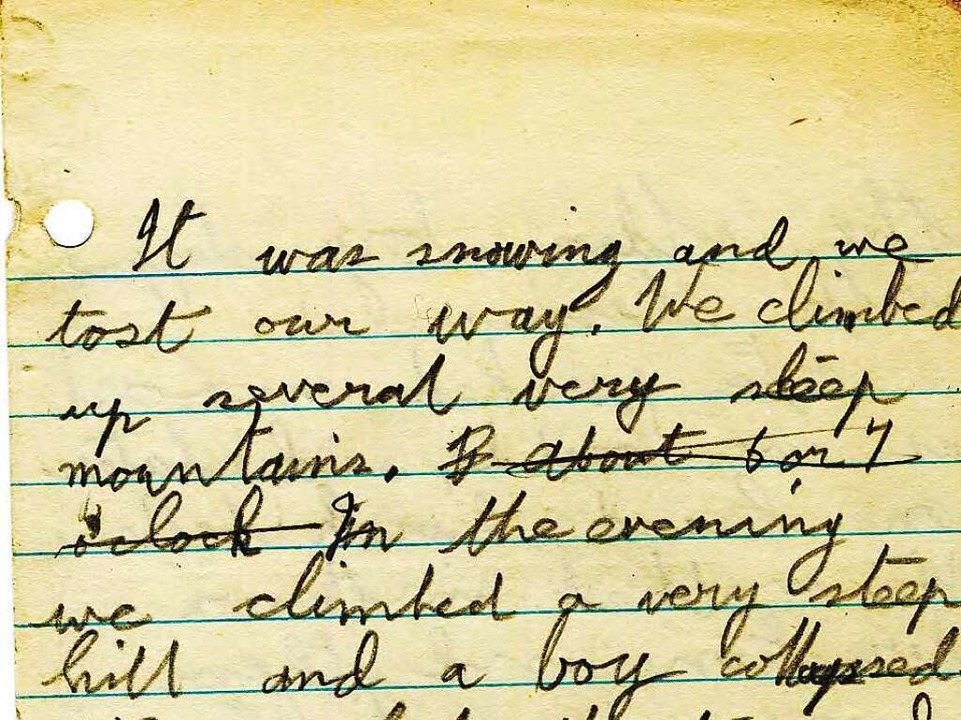 It was snowing and we
tost our way. We climbed
up several very steep
mountains. about 6 or 7
o'clock In the evening
we climbed a very steep
hill and a boy collapsed